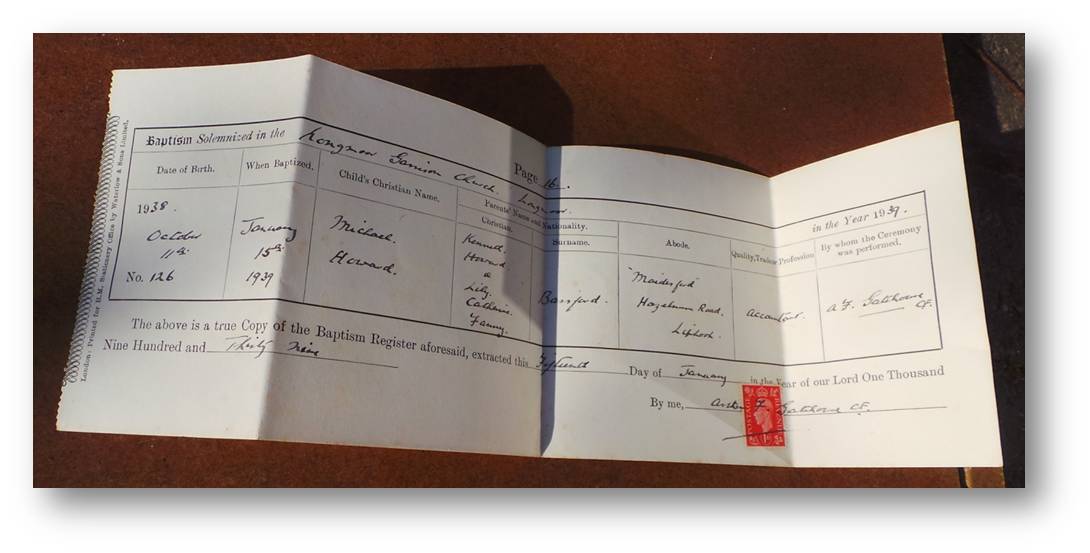 London: Printed for H.M. Stationery Office by Waterlow & Sons Limited.
Page 16.
Baptism Solemnized in the Longmoor Garrison Church. Longmoor. in the Year 1939.
Date of Birth. When Baptized. Child's Christian Name. Parents' Name and Nationality. Abode. Quality, Trade or Profession By whom the Ceremony was performed.
Christian. Surname.
1938. October 11th No. 126
January 15th 1939
Michael. Howard.
Kenneth Howard & Lily. Catherine. Fanny.
Hazelmere Road. Liphook.
Accountant.
A F. CF.
The above is a true Copy of the Baptism Register aforesaid, extracted this Fifteenth Day of January in the Year of our Lord One Thousand
Nine Hundred and Thirty Nine
By me, F CF.
POSTAGE REVENUE
1D